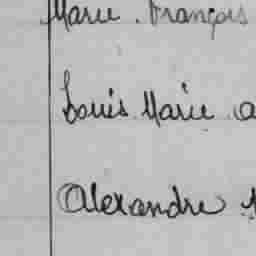 Marie. François
Louis Marie
Alexandre